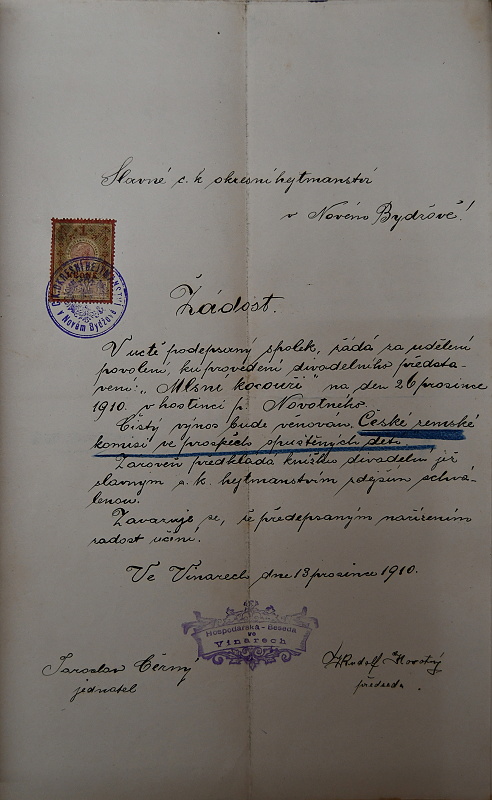 Slavné c. k. okresní hejtmanství
v Novém Bydžově!
1
C.K. OKRESNÍ HEJTMANSTVÍ
v Novém Bydžově
Žádost.
V uctě podepsaný spolek, žádá za udělení
povolení, ku provedení divadelního předsta-
vení: „Mlsní kocouři" na den 26 prosince
1910. v hostinci p. Novotného.
Čistý výnos bude věnovan České zemské
komisi ve prospěch spuštěných dětí.
Zaroveň předkládá knížku divadelní již
slavnym c. k. hejtmanstvím zdejším schvá-
lenou.
Zavazuje se, že předepsaným nařízením
zadost učiní.
Ve Vinarech dne 13 prosince 1910.
Hospodářská - Beseda
ve
Vinarech
Jaroslav Černý
jednatel
Rudolf Novotný
předseda